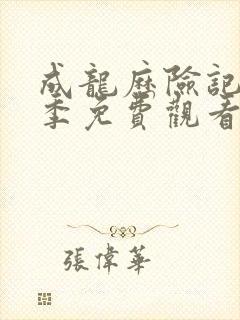 成龍歷險記
季免費觀看
張偉華